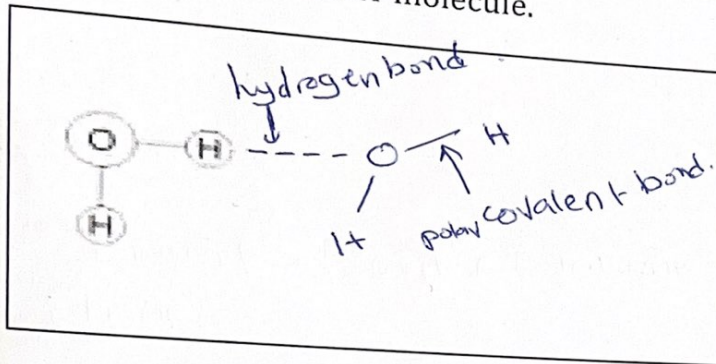 molecule.
hydrogen bond
O H O H
H H polar covalent bond.